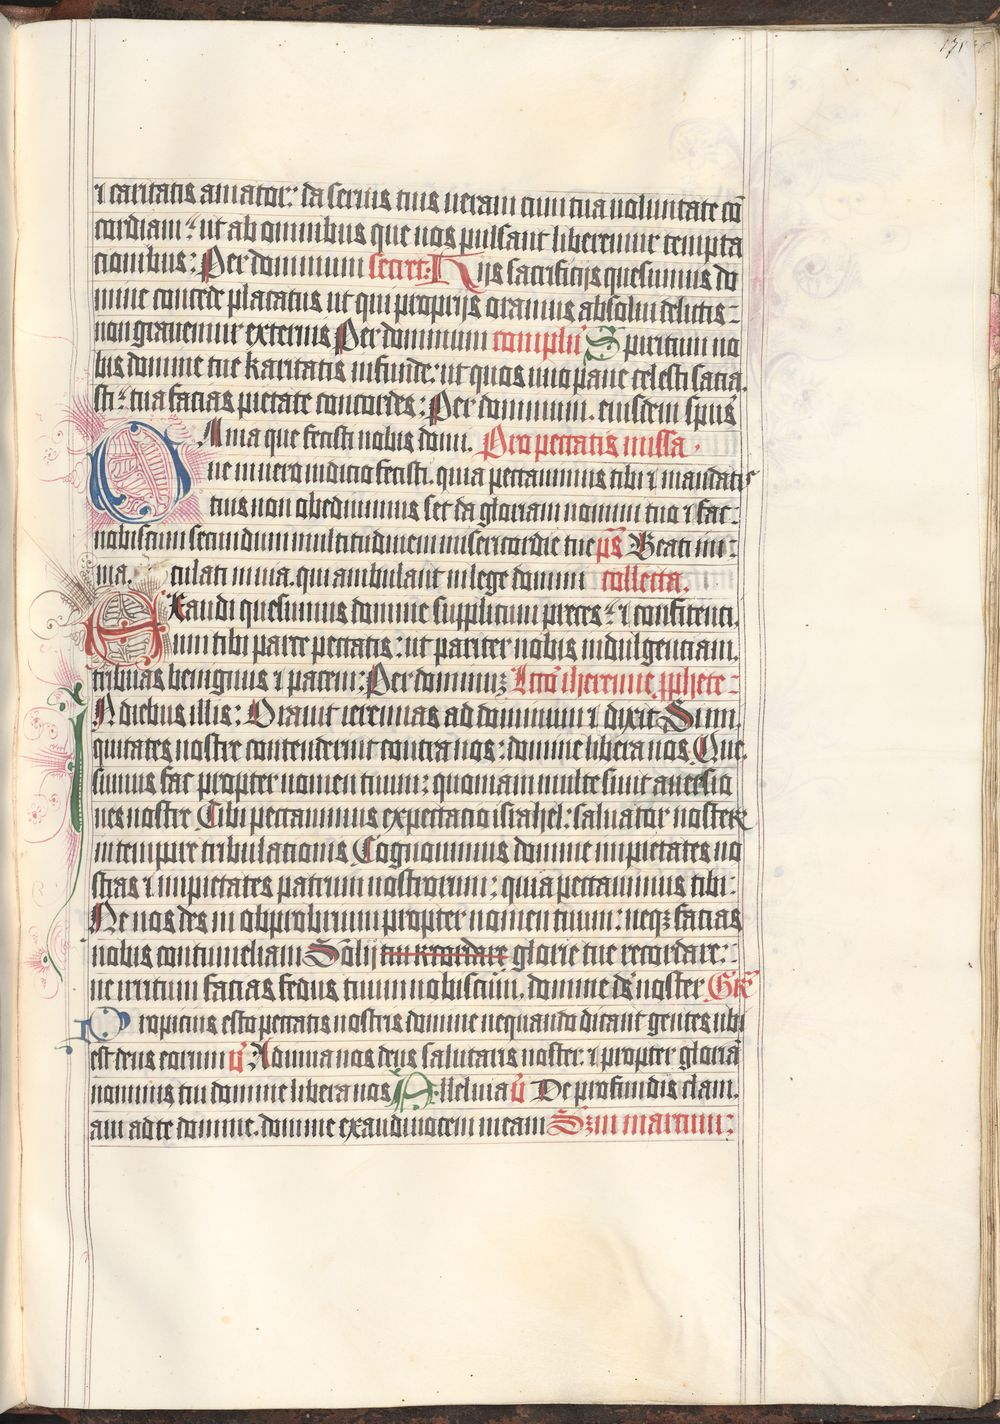 ⁊ caritatis amator: da seruis tuis ueram cum tua uoluntate cō
cordiam: ut ab omnibus que nos pulsant liberemur tempta
cionibus: Per dominum secret: Hijs sacrificijs quesumus do
mine concede placatus ut qui proprijs oramus absolui delictis
non grauemur externis Per dominum complē Spiritum no
bis domine tue karitatis infunde: ut quos uno pane celesti sacia
sti: tua facias pietate concordes: Per dominum. eiusdem spus
Omnia que fecisti nobis domi. Pro peccatis missa
ne in uero iudicio fecisti. quia peccauimus tibi ⁊ mandatis
tuis non obediuimus set da gloriam nomini tuo ⁊ fac:
nobiscum secundum multitudinem misericordie tue ps Beati im:
ma. culati in uia. qui ambulant in lege domini collecta.
Exaudi quesumus domine supplicum preces: ⁊ confitenci
um tibi parce peccatis: ut pariter nobis indulgenciam.
tribuas benignus ⁊ pacem: Per dominuz Lcco iheremie pphete:
In diebus illis: Orauit ieremias ad dominum ⁊ dixit Si ini
quitates nostre contenderint contra nos: domine libera nos Que
sumus fac propter nomen tuum: quoniam multe sunt auersio
nes nostre Tibi peccauimus expectacio israhel: saluator noster
in tempore tribulacionis Cognouimus domine impietates no
stras ⁊ impietates patrum nostrorum: quia peccauimus tibi
Ne nos des in obprobrium propter nomen tuum: neqz facias
nobis contumeliam Solij tui recordare glorie tue recordare:
ne irritum facias fedus tuum nobiscum. domine ds noster Gre
Propicius esto peccatis nostris domine nequando dicant gentes ubi
est deus eorum v Adiuua nos deus salutaris noster. ⁊ propter gloriā
nominis tui domine libera nos Alleluia v De profundis clam.
aui ad te domine. domine exaudi uocem meam Sz̄m marcum: